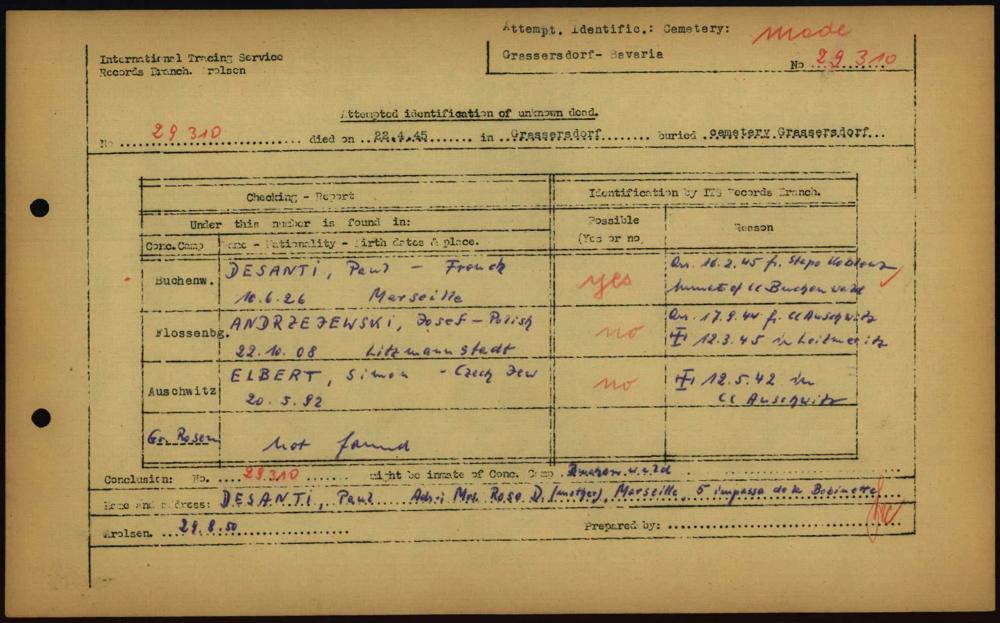 Attempt. Identific.: Cemetery: Made
Grassersdorf- Bavaria No 29 310
International Tracing Service
Records Branch. Arolsen
Attempted identification of unknown dead.
No 29310 died on 22.4.45 in Grassersdorf buried cemetery Grassersdorf
Checking - Report Identification by ITS Records Branch.
Under this number is found in: Possible (Yes or no) Reason
Conc.Camp Name - Nationality - Birth dates & place.
Buchenw. DESANTI, Paul - French yes Arr. 16.2.45 fr. Stapo Koblenz
10.6.26 Marseille Inmate of CC Buchenwald
Flossenbg. ANDRZEJEWSKI, Josef - Polish no Arr. 17.9.44 fr. CC Auschwitz
22.10.08 Litzmannstadt 12.3.45 in Leitmeritz
Auschwitz ELBERT, Simon - Czech Jew no 12.5.42 in
20.5.92 CC Auschwitz
Gr. Rosen not found
Conclusion: No. 29310 might be inmate of Conc. Camp Buchenwald
Name and address: DESANTI, Paul Adr: Mrs. Rose D. (mother), Marseille, 5 impasse de la
Arolsen. 29.8.50 Prepared by: